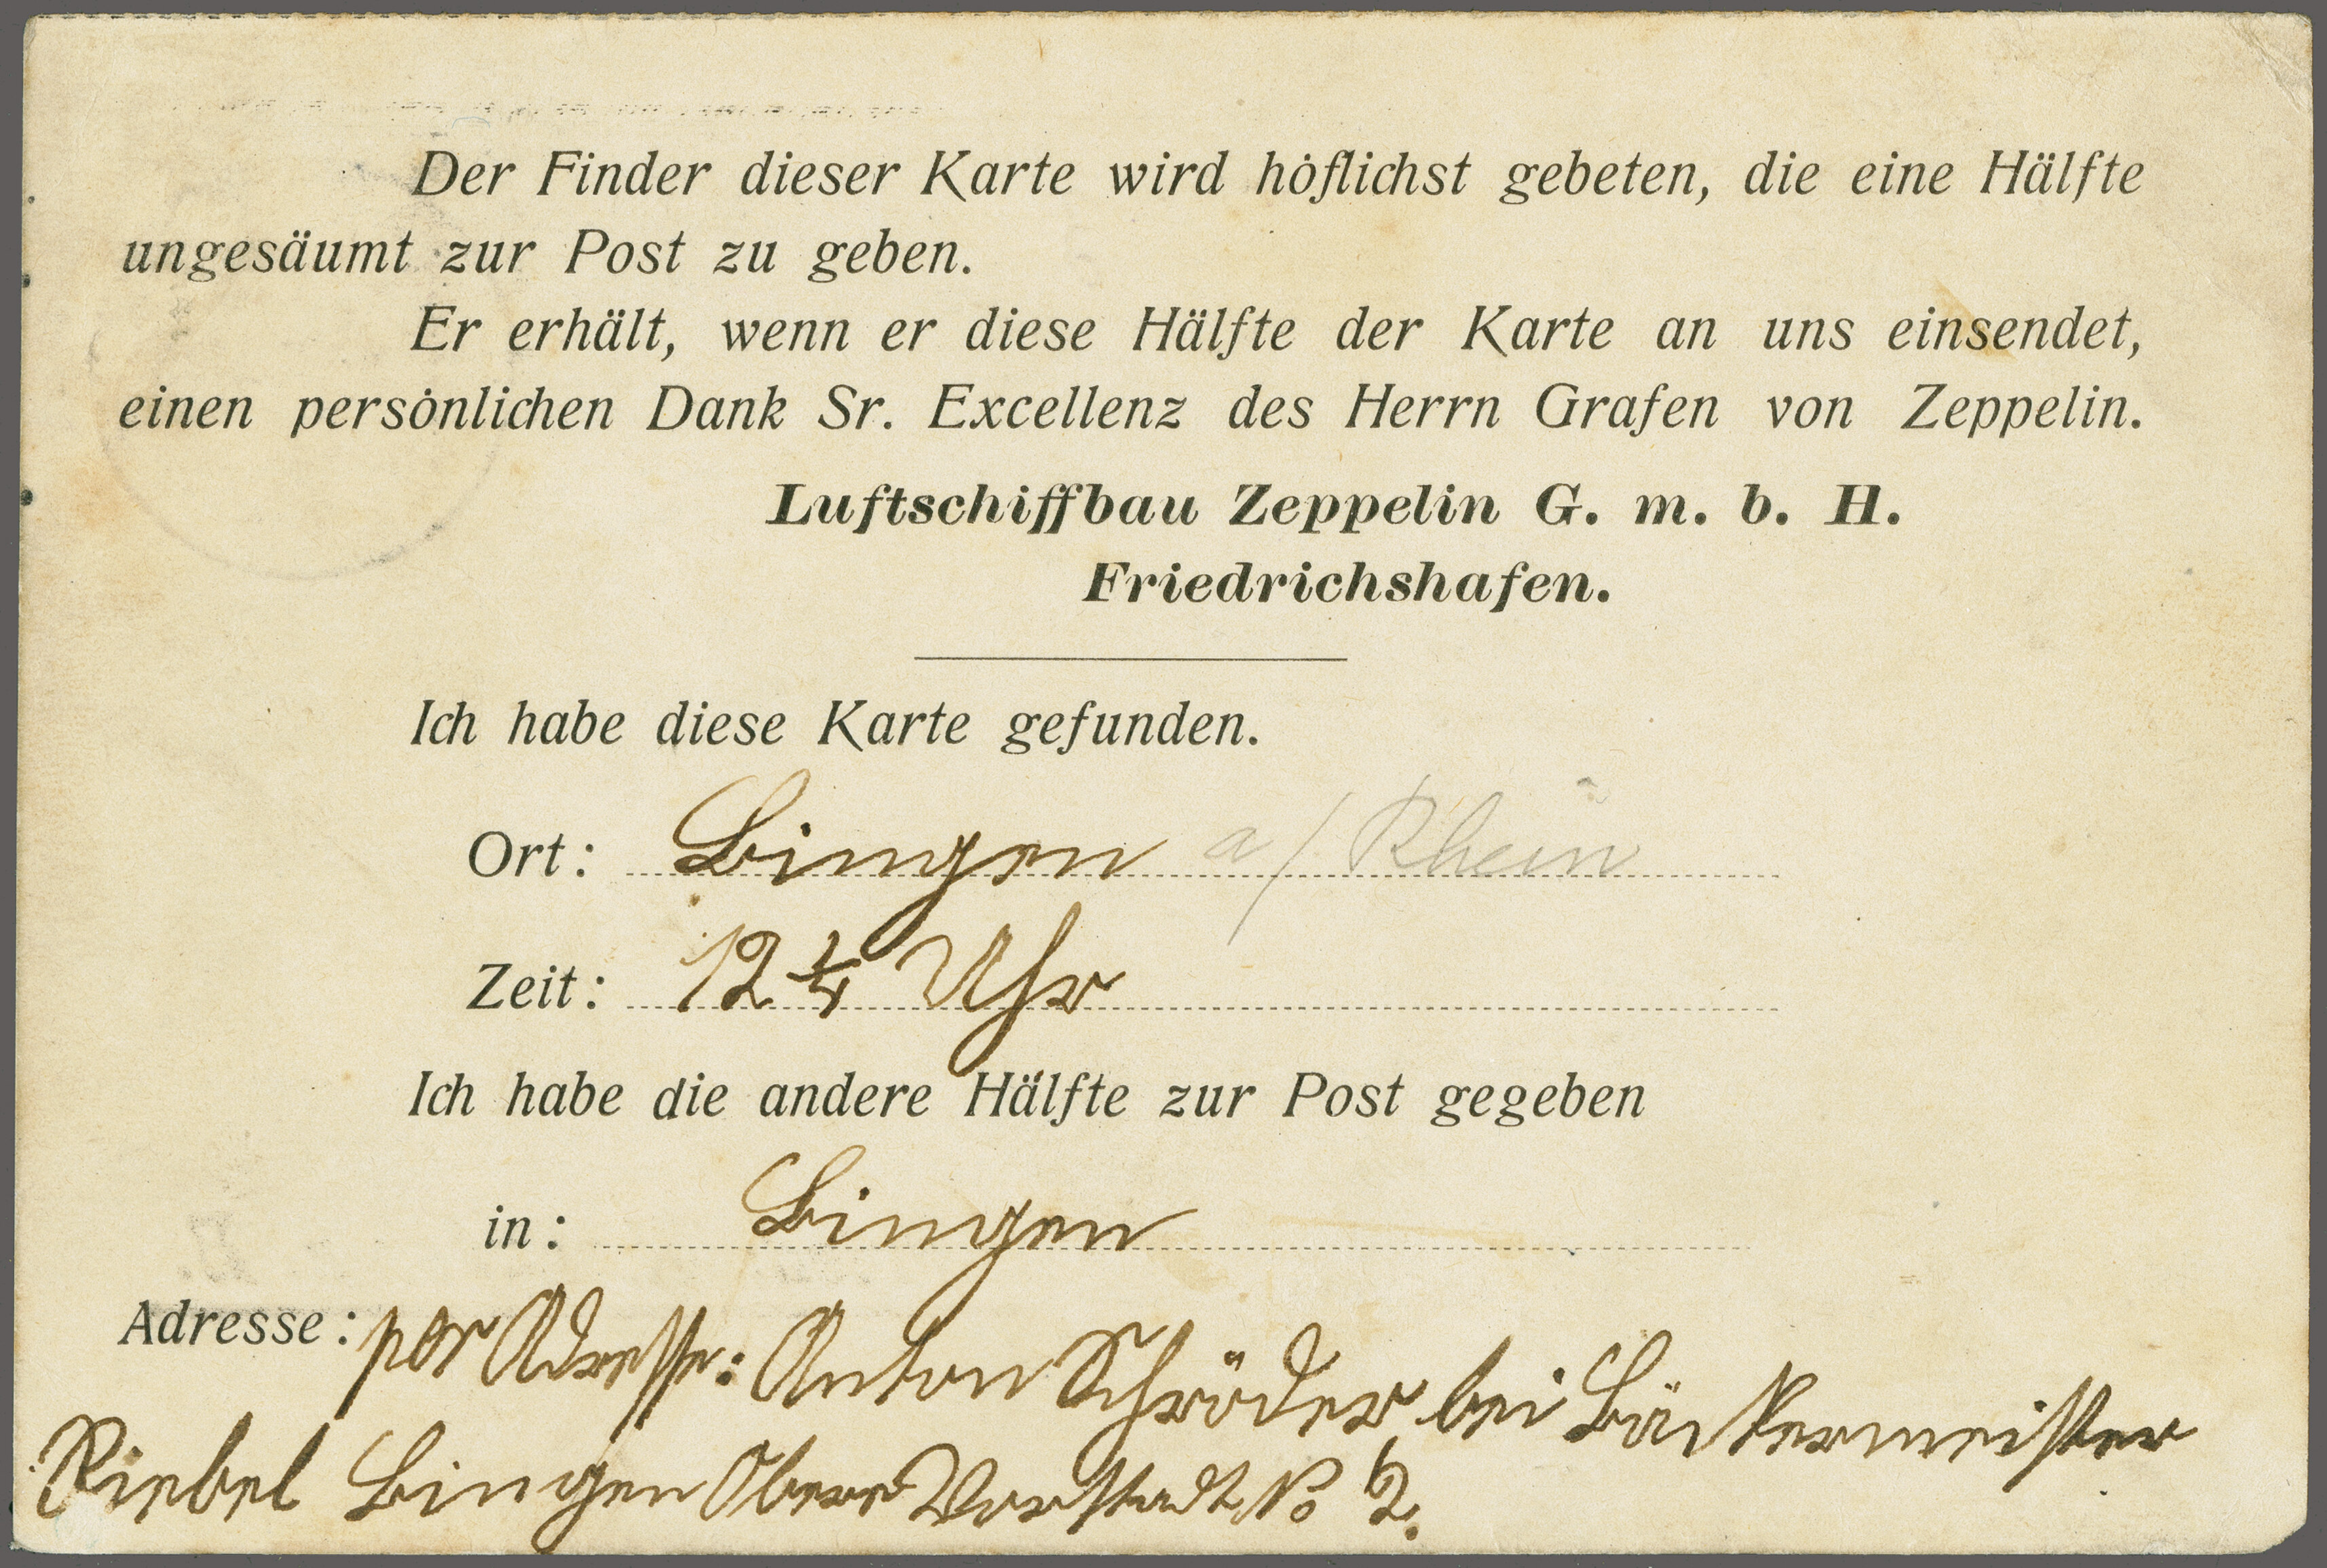 Der Finder dieser Karte wird höflichst gebeten, die eine Hälfte
ungesäumt zur Post zu geben.
Er erhält, wenn er diese Hälfte der Karte an uns einsendet,
einen persönlichen Dank Sr. Excellenz des Herrn Grafen von Zeppelin.
Luftschiffbau Zeppelin G. m. b. H.
Friedrichshafen.
Ich habe diese Karte gefunden.
Ort: Bingen a/Rhein
Zeit: 12 1/4 Uhr
Ich habe die andere Hälfte zur Post gegeben
in: Bingen
Adresse: per Adresse: Anton Schröder bei Bäckermeister
Riebel Bingen Obere Vorstadt No 2.